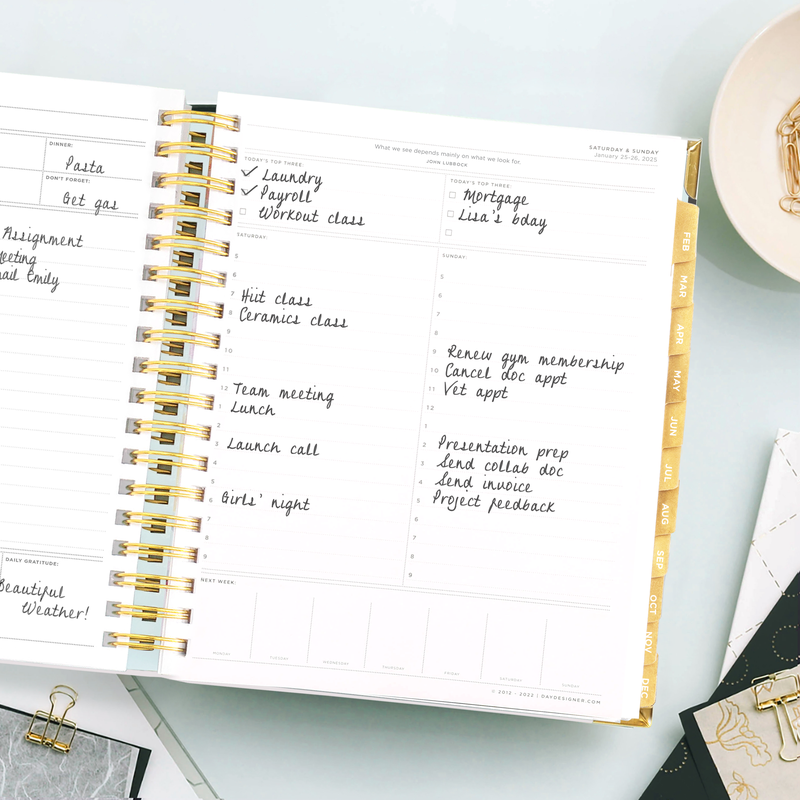 DINNER:
Pasta
DON'T FORGET:
Get gas
Assignment
Emily
DAILY GRATITUDE:
Beautiful
Weather!
What we see depends mainly on what we look for.
JOHN LUBBOCK
SATURDAY & SUNDAY
January 25-26, 2025
TODAY'S TOP THREE:
Laundry
Payroll
Workout class
TODAY'S TOP THREE:
Mortgage
Lisa's bday
SATURDAY:
5
6
7 Hiit class
8 Ceramics class
9
10
11
12 Team meeting
1 Lunch
2
3 Launch call
4
5
6 Girls' night
7
8
9
SUNDAY:
5
6
7
8
9 Renew gym membership
10 Cancel doc appt
11 Vet appt
12
1
2 Presentation prep
3 Send collab doc
4 Send invoice
5 Project feedback
6
7
8
9
NEXT WEEK:
MONDAY
TUESDAY
WEDNESDAY
THURSDAY
FRIDAY
SATURDAY
SUNDAY
© 2012 - 2025 | DAYDESIGNER.COM
FEB
MAR
APR
MAY
JUN
JUL
AUG
SEP
OCT
NOV
DEC